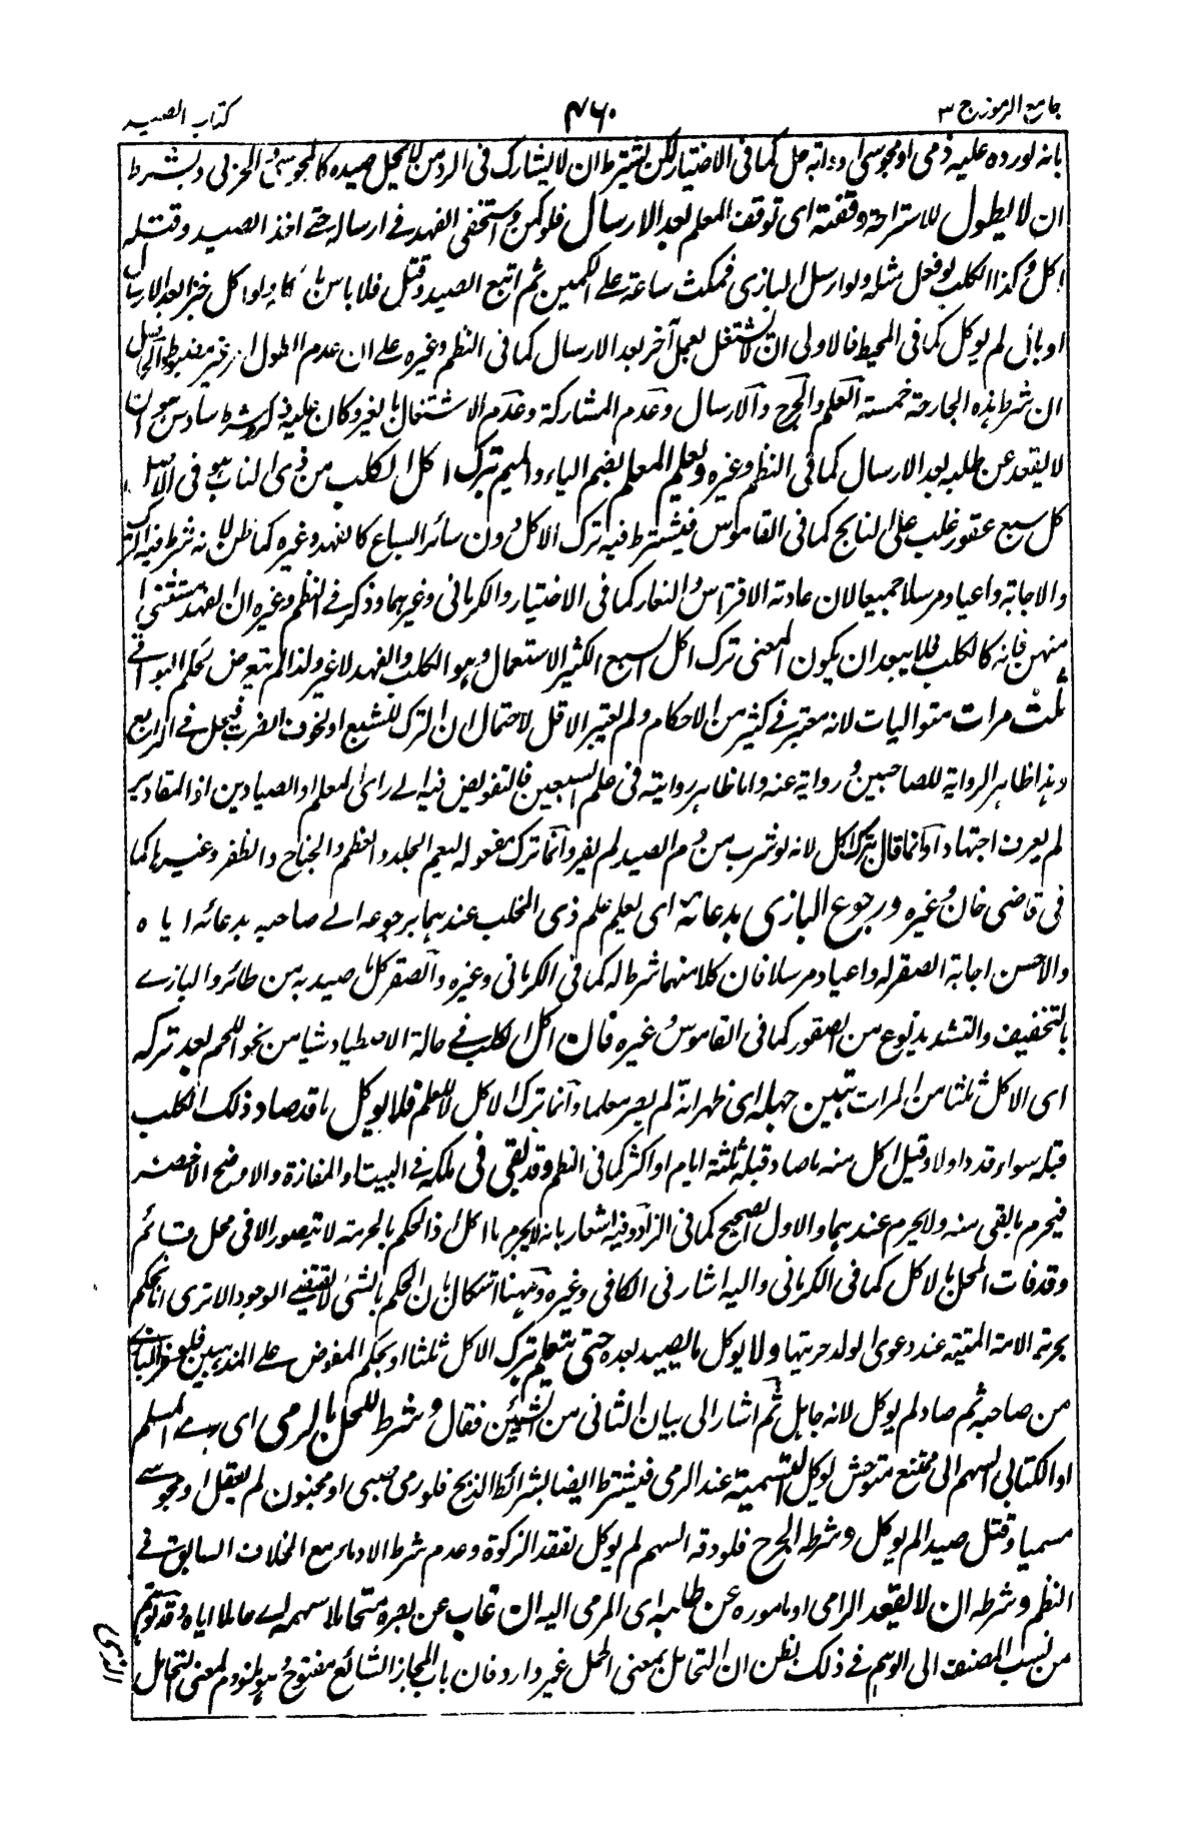 جامع الرموز ج ٣
٤٦٠
كتاب الصيد
بانه لورده عليه ذمى او مجوسى او دابة حل كما فى الاختيار لكن يشترط ان لا يشارك فى الرد من لا يحل صيده كالمجوسى والحربى ويشترط
ان لا يطول للاستراحة وقفته اى توقف المعلم بعد الارسال فلو كمن واستخفى الفهد فے ارساله حتے اخذ الصيد وقتله
اكل وكذا الكلب لو فعل مثله ولو ارسل البازى فمكث ساعة علے الكمين ثم اتبع الصيد وقتل فلا باس باكله ولو اكل خبزا بعد الارسال
او بال لم يوكل كما فى المحيط فالاولى ان لا يشتغل بعمل آخر بعد الارسال كما فى النظم وغيره على ان عدم الطول امر غير مضبوط
ان شرط هذه الجارحة خمسة العلم والجرح والارسال وعدم المشاركة وعدم الاشتغال بالغير وكان عليه ذكر شرط سادس هو ان
لا يقعد عن طلبه بعد الارسال كما فى النظم وغيره ويعلم المعلم بضم الياء والميم بترك اكل الكلب من ذى الناب هو فى الاصل
كل سبع عقور غلب على النابح كما فى القاموس فيشترط فيه ترك الاكل دون سائر السباع كالفهد وغيره كما ظن لانه شرط فيه الترك
والاجابة داعيا ومرسلا جميعا لان عادته الافتراس والنفار كما فى الاختيار والكرمانى وغيرهما وذكر فے النظم وغيره ان الفهد مستثنى
منهن فانه كالكلب فلا يبعد ان يكون المعنى ترك اكل السبع الكثير الاستعمال وهو الكلب والفهد لا غير ولذا لم يتعرض لحكم البواقے
ثلث مرات متواليات لانه معتبر فے كثير من الاحكام ولم يعتبر الاقل لاحتمال ان الترك للشبع او لخوف الضرب فيحل فے الرابع
وهذا ظاهر الرواية للصاحبين ورواية عنه واما ظاهر روايته فى علم السبعين فالتفويض فيه الے راى المعلم او الصيادين اذ المقادير
لم يعرف اجتهادا وانما قال بترك اكل لانه لو شرب من دم الصيد لم يضر وانما ترك مفعوله ليعم الجلد والعظم والجناح والظفر وغيرها كما
فى قاضى خان وغيره ورجوع البازى بدعائه اى يعلم علم ذى المخلب عندهما برجوعه الے صاحبه بدعائه ا يا ه
والاحسن اجابة الصقر له داعيا ومرسلا فان كلا منهما شرط له كما فى الكرمانى وغيره والصقر كل ما صيد به من طائر والبازے
بالتخفيف والتشديد نوع من الصقور كما فى القاموس وغيره فان اكل الكلب فے حالة الاصطياد شيا من نحو اللحم بعد تركه
اى الاكل ثلثا من المرات تبين جهله اى ظهر انه لم يصر معلما وانما ترك الاكل لا للعلم فلا يوكل ما قد صاد ذلك الكلب
قبله سواء قدد اولا وقيل اكل منه ما صاد قبله ثلثة ايام او اكثر كما فى النظم وقد بقى فى ملكه فے البيت او المفازة والاوضح الاخصر
فيحرم ما بقى منه ولا يحرم عندهما والاول الصحيح كما فى الزاد وفيه اشعار بانه لا يحرم ما اكل اذ الحكم بالحرمة لا يتصور الا فى محل قائم
وقد فات المحل بالاكل كما فى الكرمانى واليه اشار فى الكافى وغيره وههنا اشكال بان الحكم بالشئ لا يقتضے الوجود الا ترى انه يحكم
بحرية الامة الميتة عند دعوى الولد حريتها ولا يوكل ما يصيد بعده حتى يتعلم بترك الاكل ثلثا او بحكم المفوض علے المذهبين
من صاحبه ثم صاد لم يوكل لانه جاهل ثم اشار الى بيان الثانى من الشيئين فقال وشرط للحل بالرمى اى رمے المسلم
او الكتابى السهم الى ممتنع متوحش يوكل التسمية عند الرمى فيشترط ايضا بشرائط الذبح فلو رمى صبى او مجنون لم يعقل او مجوسے
مسميا وقتل صيدا لم يوكل وشرطه الجرح فلو دقه السهم لم يوكل لفقد الذكوة وعدم شرط الادماء مع الخلاف السابق فے
النظم وشرطه ان لا يقعد الرامى او ماموره عن طلبه اى المرمى اليه ان غاب عن بصره متحاملا سهمه اے حاملا اياه وقد توهم
من نسب المصنف الى الوهم فے ذلك بظن ان التحامل بمعنى الحمل غير وارد فان باب المجاز الشائع مفتوح